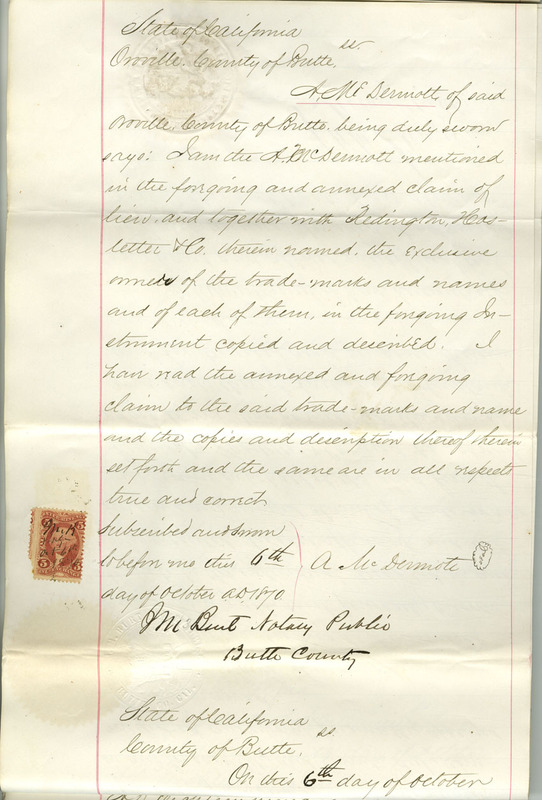 State of California
Oroville. County of Butte. ss.
A. McDermott, of said
Oroville. County of Butte. being duly sworn
says: I am the A. McDermott mentioned
in the forgoing and annexed claim of
lien. and together with Redington, Hos-
tetter & Co. therein named. the exclusive
owners of the trade-marks and names
and of each of them, in the forgoing In-
strument copied and described. I
have read the annexed and forgoing
claim to the said trade-marks and name
and the copies and description thereof therein
set forth and the same are in all respects
true and correct
Subscribed and sworn
to before me this 6th
day of October A.D. 1870
A McDermott
Seal
Notary Public
Butte County
State of California
County of Butte. ss
On this 6th day of October